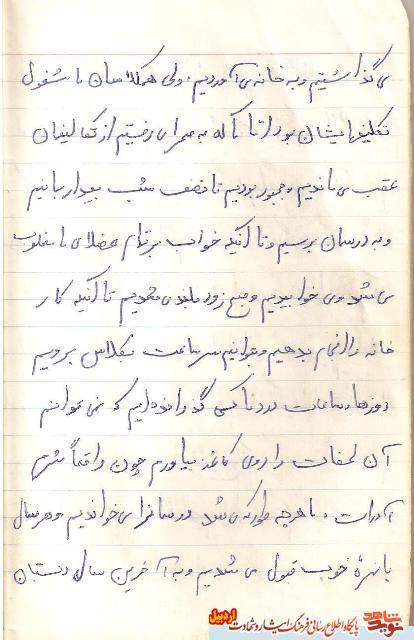 می گذاشتیم و به خانه می آوردیم، ولی همکلاسان ما مشغول
تکلیفهایشان بودند تا ما که به صحرا می رفتیم از تکالیفمان
عقب می ماندیم و مجبور بودیم تا نصف شب بیدار بمانیم
و به درسمان برسیم و تا آنکه خواب بر تمام عضلات ما مغلوب
می شد و می خوابیدیم و صبح زود بلند می شدیم تا آنکه کار
خانه را انجام بدهیم و بتوانیم سر ساعت بکلاس برویم
روزها و ساعات دردناکی گذرانده ایم که نمی توانم
آن لحظات را روی کاغذ بیاورم چون واقعاً
آور است، ما هرچه طور که می شد درسمان را می خواندیم و هر سال
با نمرهٔ خوب قبول می شدیم و به آخرین سال دبستان
نوید شاهد
پایگاه اطلاع رسانی فرهنگ ایثار و شهادت
اردبیل